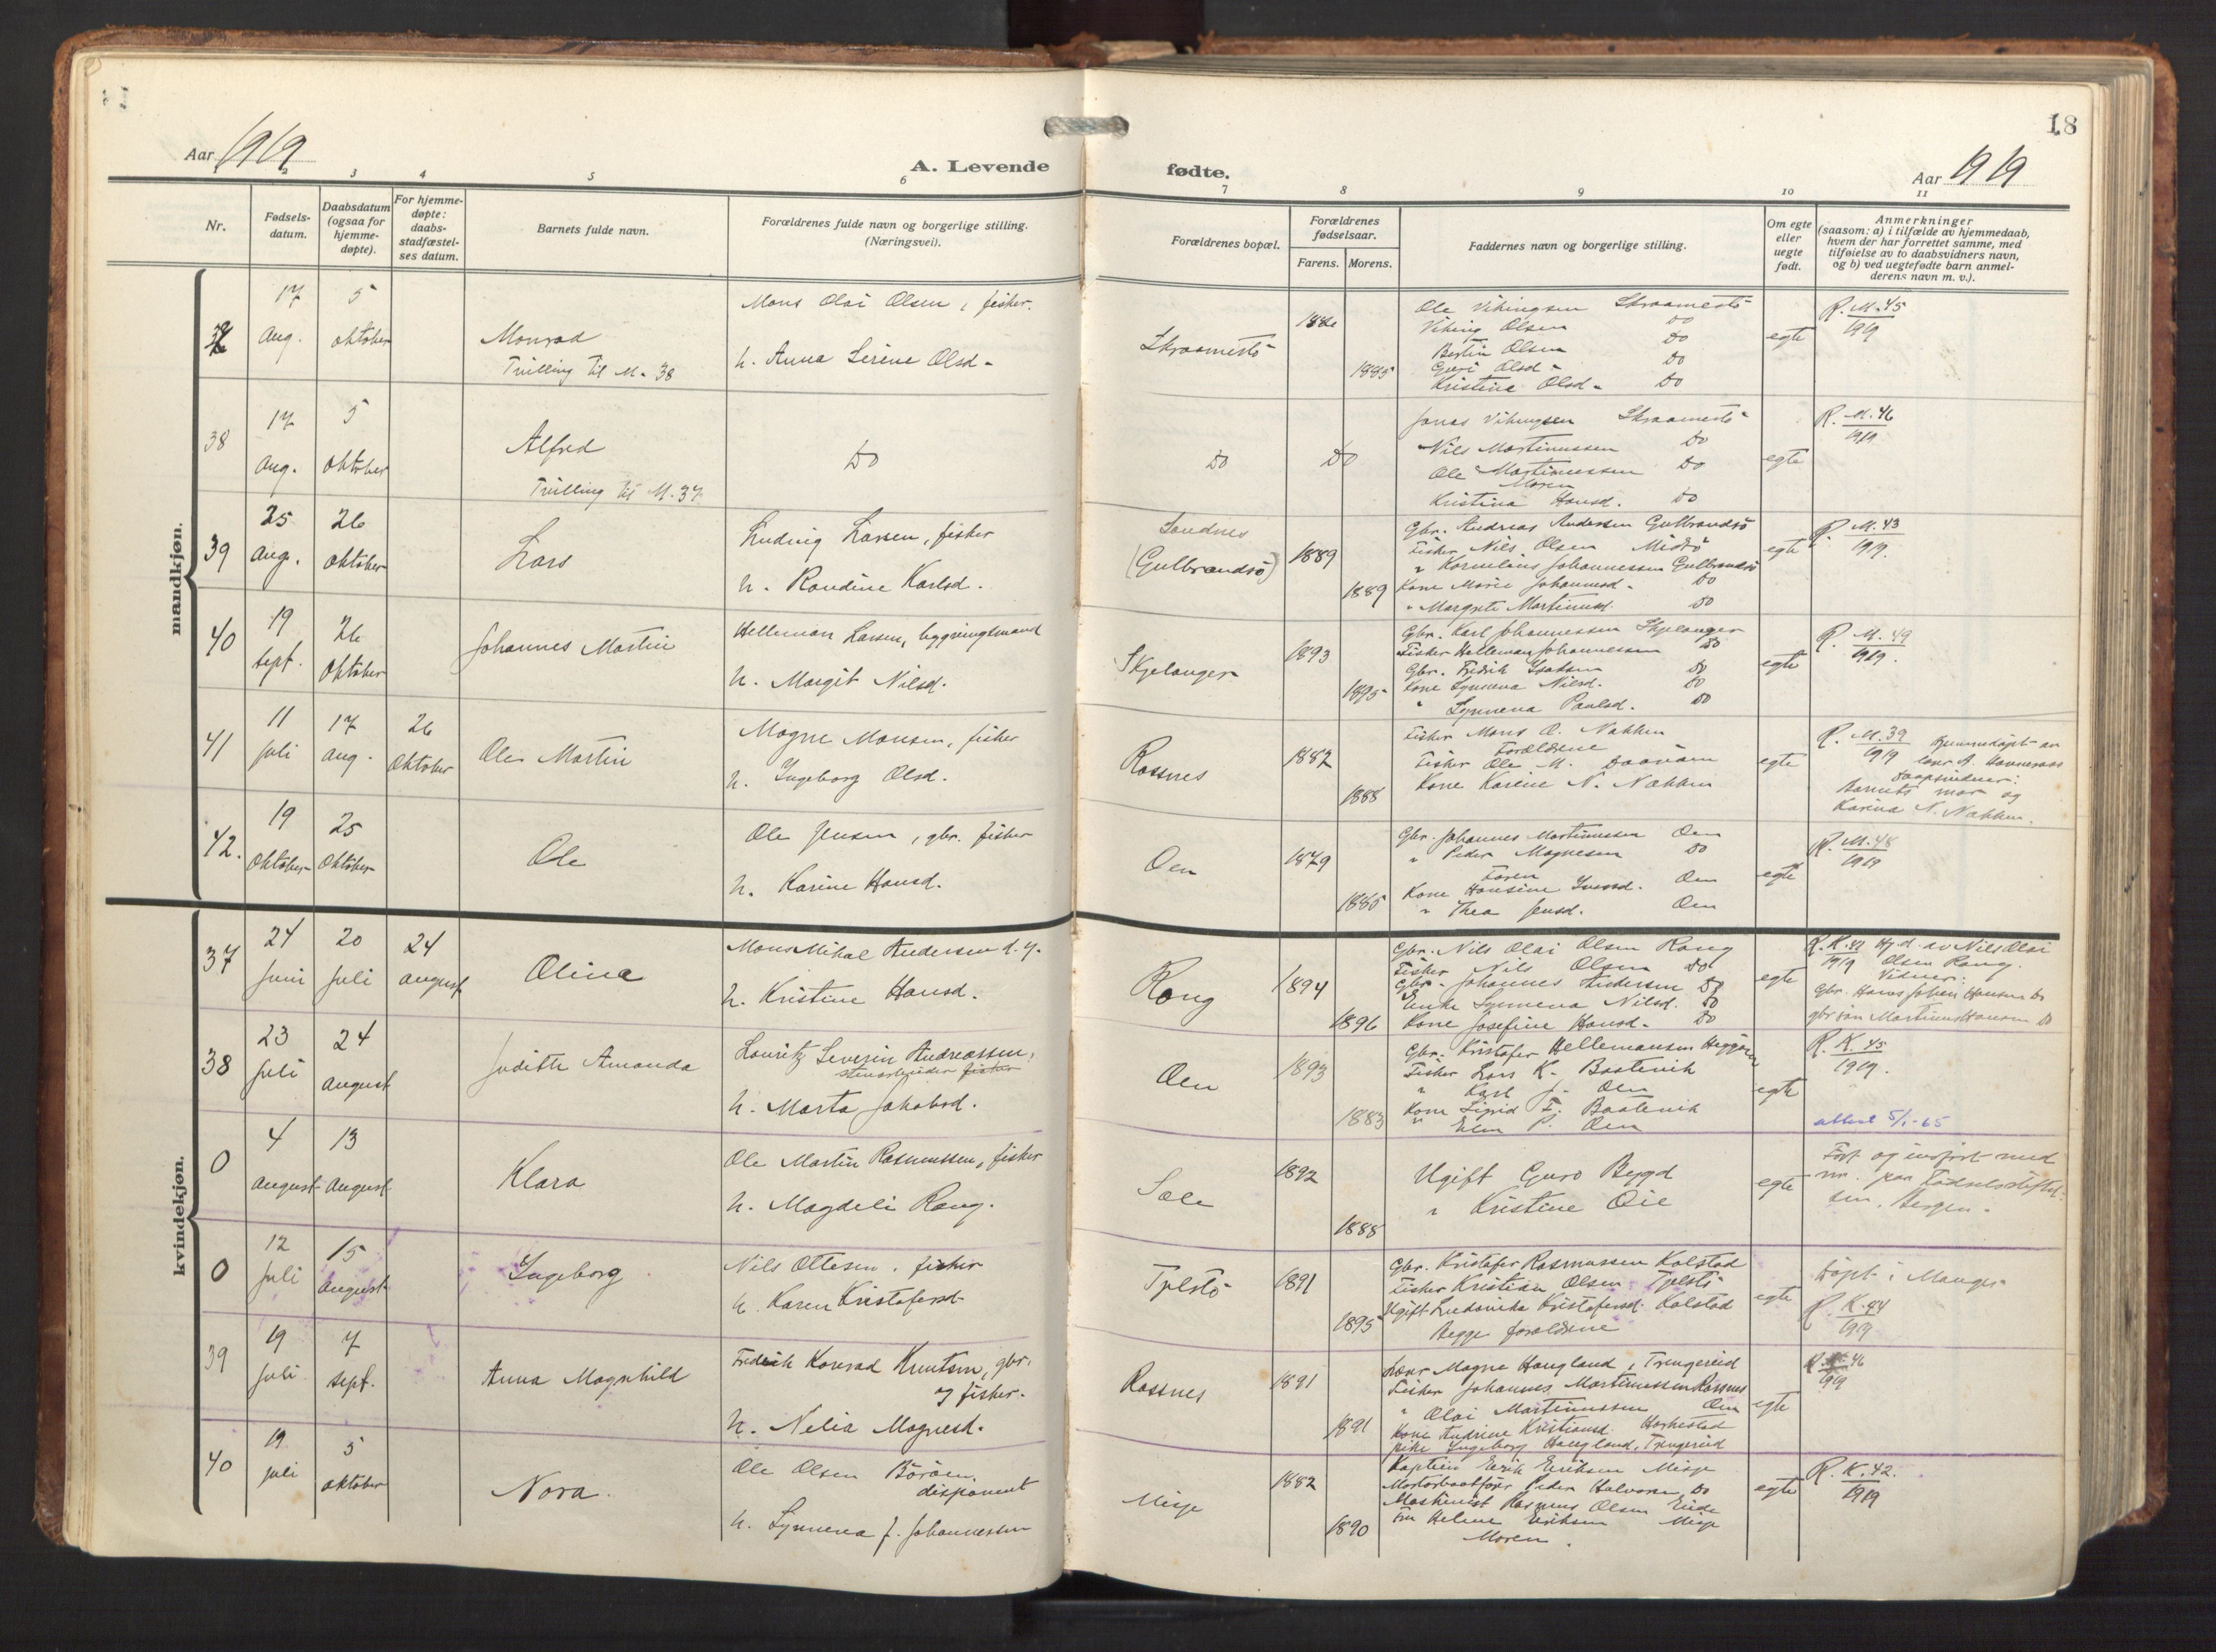 18
Aar 1919
A. Levende fødte.
Aar 1919
2 3 4 5 6 7 8 9 10 11
Nr.
Fødsels-
datum.
Daabsdatum
(ogsaa for
hjemme-
døpte).
For hjemme-
døpte:
daabs-
stadfæstel-
ses datum.
Barnets fulde navn.
Forældrenes fulde navn og borgerlige stilling.
(Næringsvei).
Forældrenes bopæl.
Forældrenes
fødselsaar.
Farens. Morens.
Faddernes navn og borgerlige stilling.
Om egte
eller
uegte
født.
Anmerkninger
(saasom: a) i tilfælde av hjemmedaab,
hvem der har forrettet samme, med
tilføielse av to daabsvidners navn,
og b) ved uegtefødte barn anmel-
derens navn m. v.).
mandkjøn.
37
17
Aug.
5
oktober
Monrad
Tvilling til M. 38
Mons Olai Olsen, fisker.
h. Anna Serine Olsd.
Skraamestö
1885
Ole Vikingsen Skraamestö
Viking Olsen Do
Bertin Olsen Do
Guri Olsd. Do
Kristine Olsd. Do
egte
R. M. 45
1919
38
17
Aug.
5
oktober
Alfred
Tvilling til M. 37
Do
Do
Do
Jonas Vikingsen Skraamestö
Nils Martinussen Do
Ole Martinussen Do
Moren
Kristina Hansd. Do
egte
R. M. 46
1919
39
25
Aug.
26
oktober
Lars
Ludvig Larsen, fisker
h. Randine Karlsd.
Sandnes
(Gulbrandsö)
1889
1889
Gbr. Andreas Andersen Gulbrandsö
Fisker Nils Olsen Midtö
" Kornelius Johannessen Gulbrandsö
Kone Marie Johannesd. Do
" Margrete Martinusd. Do
egte
R. M. 43
1919.
40
19
sept.
26
Oktober
Johannes Martin
Helleman Larsen, bygningsmand
h. Margit Nilsd.
Skjelanger
1893
1895
Gbr. Karl Johannessen Skjelanger
Fisker Helleman Johannessen Do
Gbr. Fredrik Isaksen Do
Kone Synneva Nilsd. Do
" Synneva Paulsd. Do
egte
R. M. 49
1919.
41
11
juli
17
aug.
26
Oktober
Ole Martin
Magne Monsen, fisker
h. Ingeborg Olsd.
Rossnes
1882
1888
Fisker Mons O. Nakken
Forældrene
Fisker Ole M.
Kone Karine N. Nakken
egte
R. M. 39
1919
Hjemmedöpt av
Daapsvidner:
Barnets mor og
Karina N. Nakken.
42.
19
Oktober
25
Oktober
Ole
Ole Jensen, gbr. fisker
h. Karine Hansd.
Oen
1879
1885
Gbr. Johannes Martinussen Oen
" Peder Magnesen Do
Faren
Kone Hansine Iversd. Oen
" Thea Jensd. Oen
egte
R. M. 48
1919
kvindekjøn.
37
24
Juni
20
Juli
24
august
Olina
Mons Mikal Andersen d. y.
h. Kristine Hansd.
Rong
1894
1896
Gbr. Nils Olai Olsen Rong
Fisker Nils Olsen Do
Gbr. Johannes Andersen Do
Enke Synneva Nilsd. Do
Kone Josefine Hansd. Do
egte
1919
Hj. d. av Nils Olai
Olsen Rong.
Vidner:
Gbr. Hans Johan Hansen Do
gbr sön Martinus Hansen Do
38
23
Juli
24
august
Judith Amanda
Louritz Severin Andreassen,
stenarbeider fisker
h. Marta Jakobsd.
Oen
1893
1883
Gbr. Kristofer Hellemansen Heggöen
Fisker Lars K. Baatevik
" Karl J. Oen
Kone Sigrid F. Baatevik
" Elen P. Oen
egte
R. K. 45
1919.
attest 5/1-65
0
4
august
13
August
Klara
Ole Martin Rasmussen, fisker
h. Magdeli Rong.
Sæle
1892
1888
Ugift Guro Bygd
" Kristine Öie
egte
Födt og indfört med
nr. paa Födselsstiftel-
sen, Bergen.
0
12
Juli
15
august
Ingeborg
Nils Ottesen, fisker
h. Karen Kristofersd.
Tjelstö
1891
1895
Gbr. Kristofer Rasmussen Kolstad
Fisker Kristian Olsen Tjelstö
Ugift Ludovika Kristofersd. Kolstad
Begge forældrene
egte
Döpt i Manger
R. K. 44
1919
39
19
juli
7
sept.
Anna Magnhild
Fredrik Konrad Knutsen, gbr.
og fisker.
h. Nelia Magnesd.
Rossnes
1891
1891
Lærer Magne Haugland, Trengereid
Fisker Johannes Martinussen Rossnes
" Olai Martinussen Oen
Kone Andrine Kristiansd.
Pike Ingeborg Haugland, Trengereid
egte
R. K. 46
1919
40
19.
juli
5
oktober
Nora.
Ole Olsen Böröen,
disponent
h. Synneva f. Johannessen
Misje
1882
1890
Kaptein Eirik Eriksen Misje
Motorbaatförer Peder Halvorsen, Do
Maskinist Rasmus Olsen Eide
Fru Helene Eriksen Misje
Moren.
egte
R. K. 42.
1919